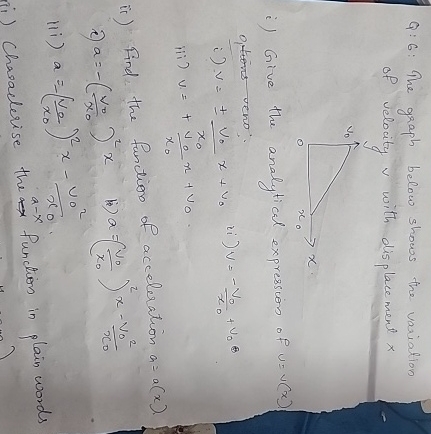 Q:6: The graph below shows the variation
of velocity v with displacement x
v₀
o
x₀
x
i) Give the analytical expression of v = v(x)
options
i) v = ± v₀/x₀ x + v₀ ii) v = -v₀/x₀ + v₀
iii) v = + v₀/x₀ x + v₀.
ii) Find the function of acceleration a = a(x)
i) a = -(v₀/x₀)² x ii) a = (v₀/x₀)² x - v₀²/x₀
iii) a = (v₀/x₀)² x - v₀²/x₀.
iii) Characterise the a-x function in plain words